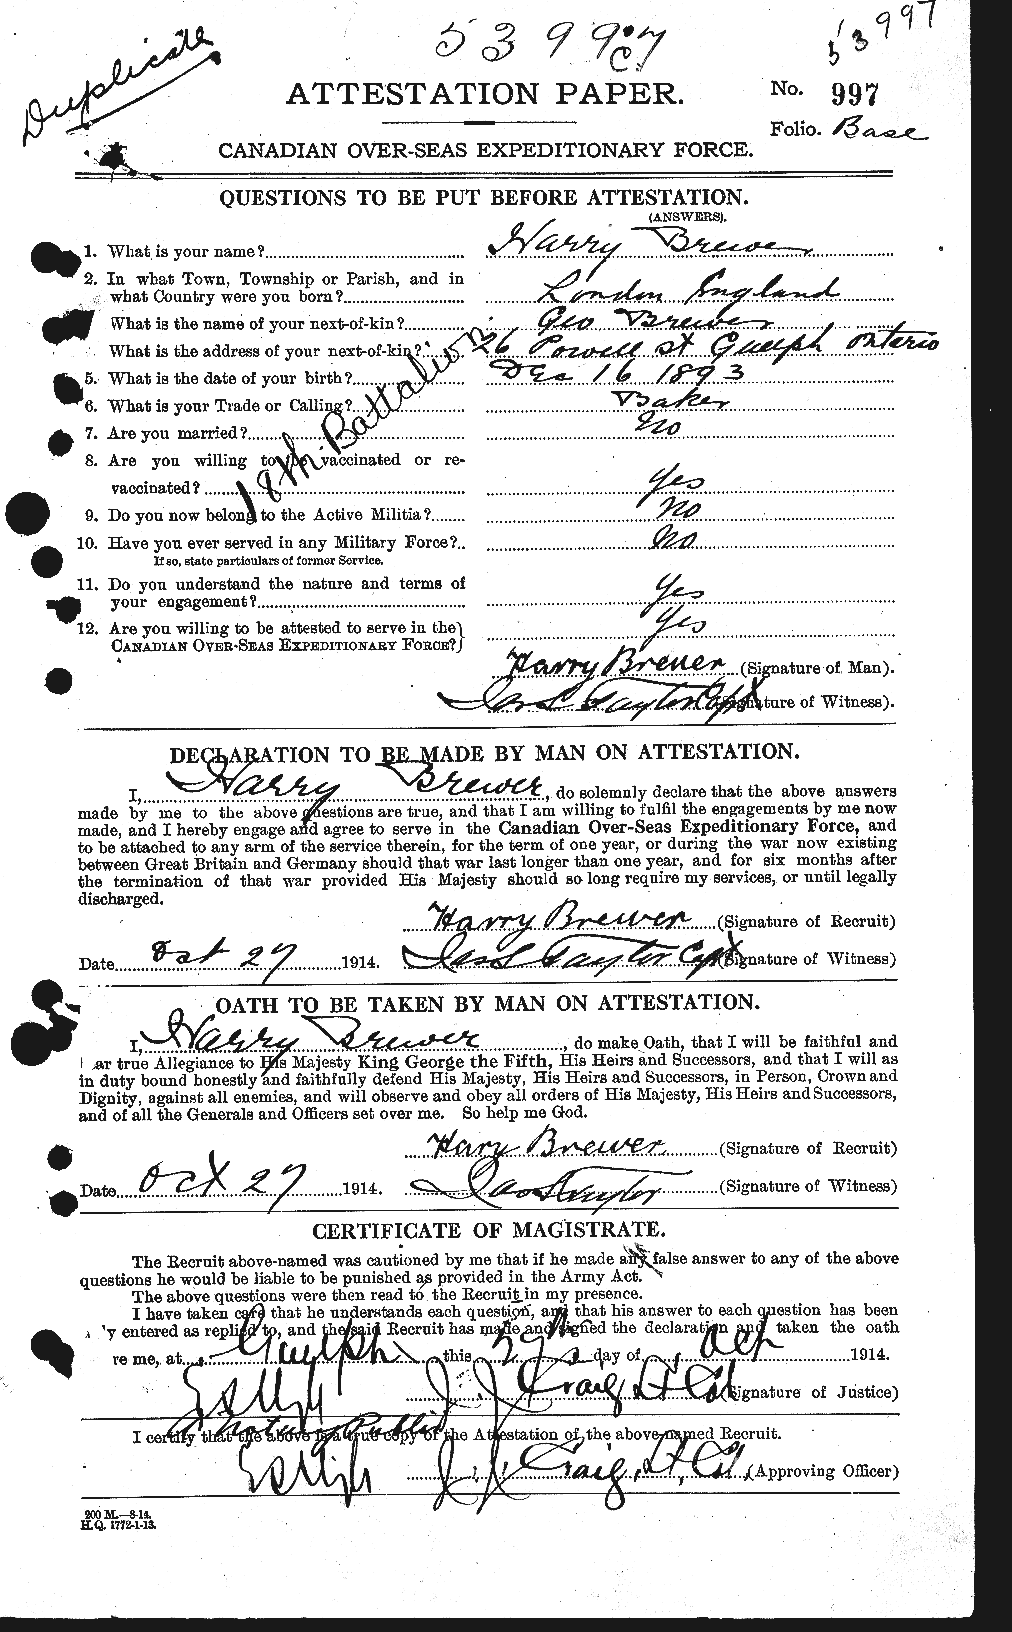 53997
C
53997
Duplicate
ATTESTATION PAPER.
No. 997
Folio. Base
CANADIAN OVER-SEAS EXPEDITIONARY FORCE.
QUESTIONS TO BE PUT BEFORE ATTESTATION.
(ANSWERS).
1. What is your name? Harry Brewer
2. In what Town, Township or Parish, and in
what Country were you born? London England
What is the name of your next-of-kin? Geo Brewer
What is the address of your next-of-kin? 26 Powell st Guelph Ontario
5. What is the date of your birth? Dec 16 1893
6. What is your Trade or Calling? Baker
7. Are you married? No
8. Are you willing to be vaccinated or re-
vaccinated? Yes
9. Do you now belong to the Active Militia? No
10. Have you ever served in any Military Force? No
If so, state particulars of former Service.
11. Do you understand the nature and terms of
your engagement? Yes
12. Are you willing to be attested to serve in the
CANADIAN OVER-SEAS EXPEDITIONARY FORCE? Yes
18th Battalion
Harry Brewer (Signature of Man).
Jas L Taylor Capt (Signature of Witness).
DECLARATION TO BE MADE BY MAN ON ATTESTATION.
I, Harry Brewer, do solemnly declare that the above answers
made by me to the above questions are true, and that I am willing to fulfil the engagements by me now
made, and I hereby engage and agree to serve in the Canadian Over-Seas Expeditionary Force, and
to be attached to any arm of the service therein, for the term of one year, or during the war now existing
between Great Britain and Germany should that war last longer than one year, and for six months after
the termination of that war provided His Majesty should so long require my services, or until legally
discharged.
Harry Brewer (Signature of Recruit)
Date Oct 27 1914. Jas L Taylor Capt (Signature of Witness)
OATH TO BE TAKEN BY MAN ON ATTESTATION.
I, Harry Brewer, do make Oath, that I will be faithful and
ar true Allegiance to His Majesty King George the Fifth, His Heirs and Successors, and that I will as
in duty bound honestly and faithfully defend His Majesty, His Heirs and Successors, in Person, Crown and
Dignity, against all enemies, and will observe and obey all orders of His Majesty, His Heirs and Successors,
and of all the Generals and Officers set over me. So help me God.
Harry Brewer (Signature of Recruit)
Date Oct 27 1914. Jas L Taylor (Signature of Witness)
CERTIFICATE OF MAGISTRATE.
The Recruit above-named was cautioned by me that if he made any false answer to any of the above
questions he would be liable to be punished as provided in the Army Act.
The above questions were then read to the Recruit in my presence.
I have taken care that he understands each question, and that his answer to each question has been
'y entered as replied to, and the said Recruit has made and signed the declaration and taken the oath
re me, at Guelph this day of Oct 1914.
J. J. Craig, Lt Col (Signature of Justice)
A Notary Public
I certify that the above is a true copy of the Attestation of the above-named Recruit.
J. J. Craig, Lt, Col (Approving Officer)
200 M.—8-14.
H.Q. 1772-1-13.